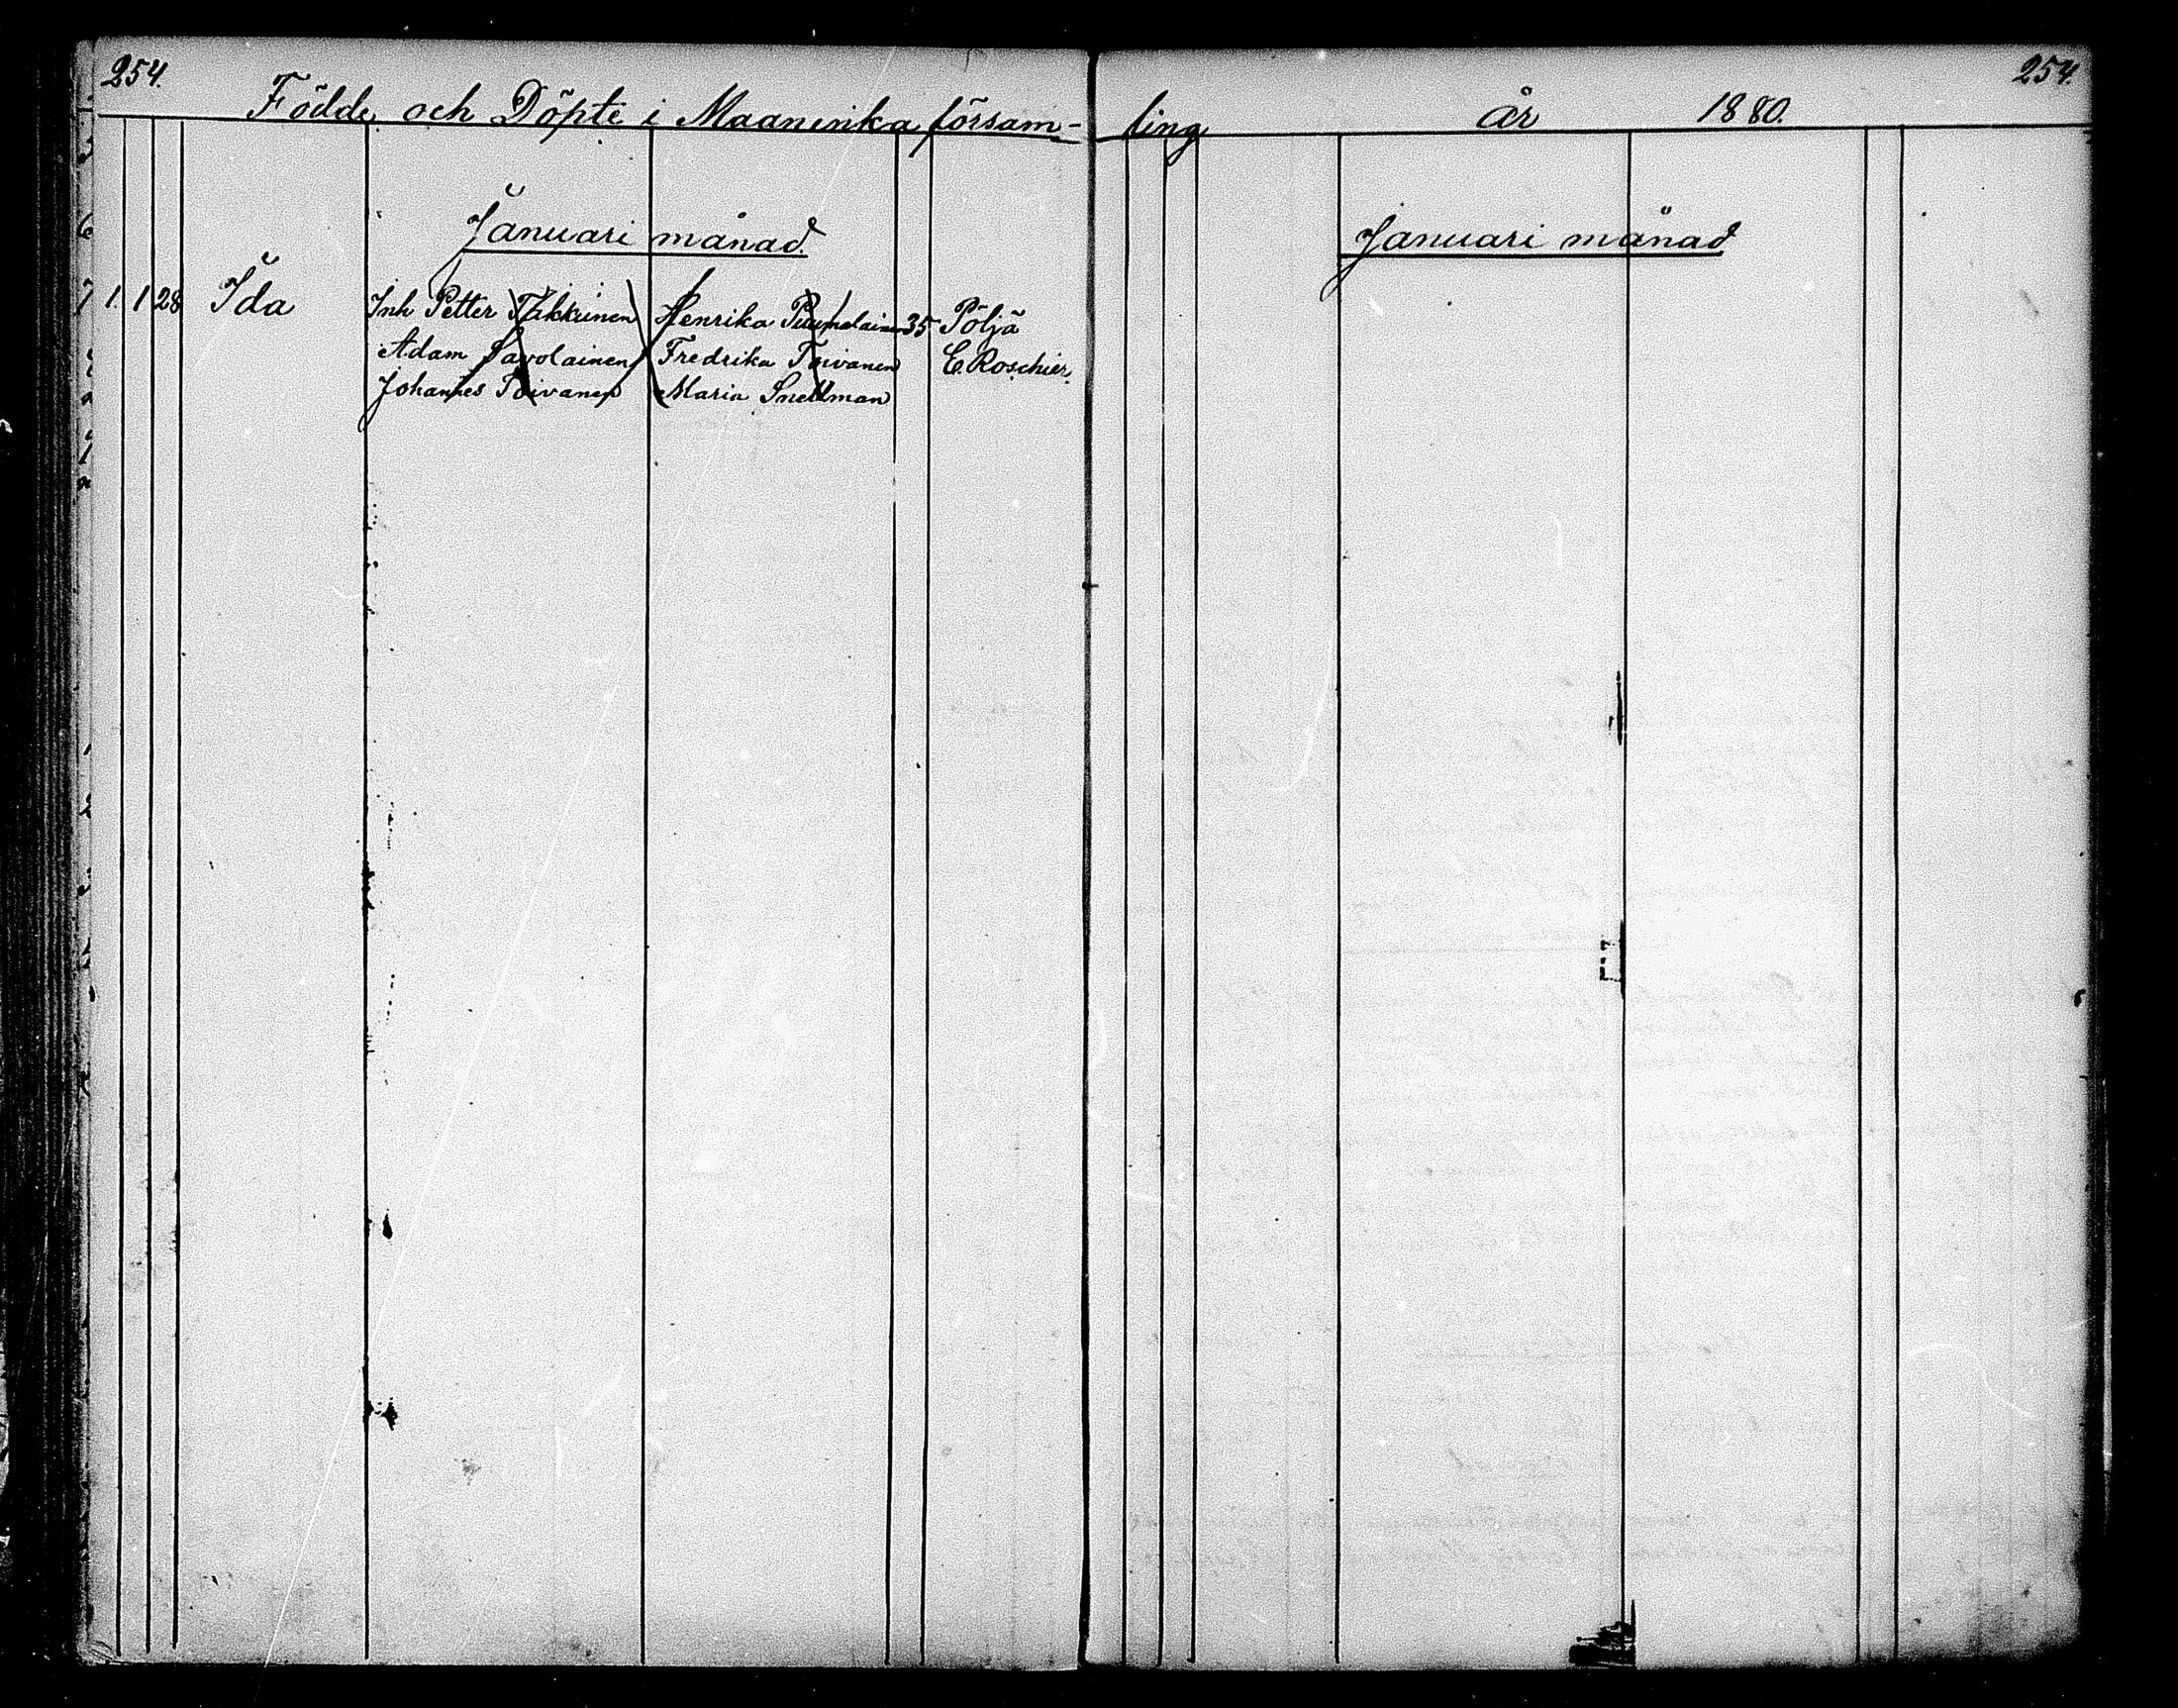 254. 254.
Födde och Döpte i Maaninka försam- ling år 1880.
Januari månad. Januari månad
1. 1 28 Ida Inh Petter Tukkinen Henrika Puumalainen 35 Pöljä
Adam Savolainen Fredrika Toivanen E. Roschier.
Johannes Toivanen Maria Snellman